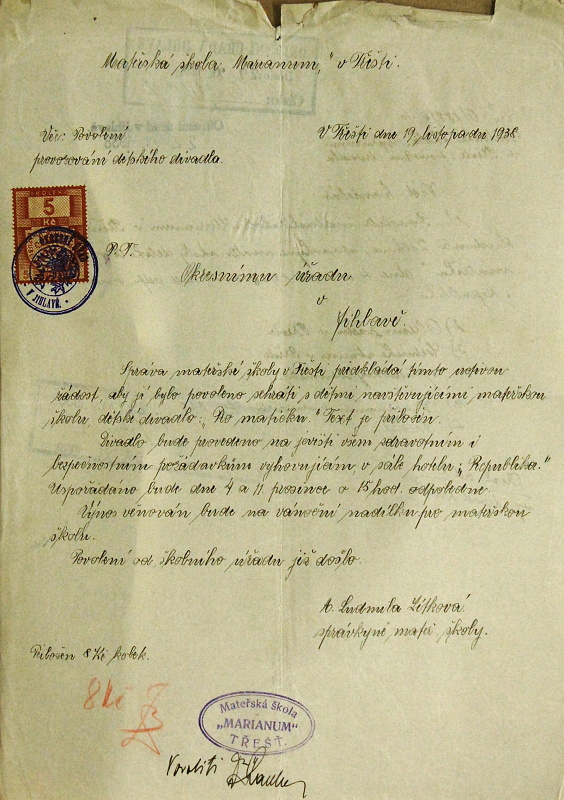 Mateřská škola „Marianum" v Třešti.
Věc: Povolení
provozování dětského divadla.
V Třešti dne 19. listopadu 1938.
KOLEK
5
Kč
V JIHLAVĚ.
P. T.
Okresnímu úřadu
v
Jihlavě.
Správa mateřské školy v Třešti předkládá tímto uctivou
žádost, aby jí bylo povoleno sehráti s dětmi navštěvujícími mateřskou
školu dětské divadlo: „Pro matičku." Text je přiložen.
Divadlo bude provedeno na jevišti všem zdravotním i
bezpečnostním požádavkům vyhovujícím, v sále hotelu „Republika."
Uspořádáno bude dne 4 a 11. prosince o 15 hod. odpoledne.
Výnos věnován bude na vánoční nadílku pro mateřskou
školu.
Povolení od školního úřadu již došlo.
A. Ludmila Žítková
správkyně mateř. školy.
Přiložen 8 Kč kolek.
8 Kč
Mateřská škola
„MARIANUM"
TŘEŠŤ.
Povoliti